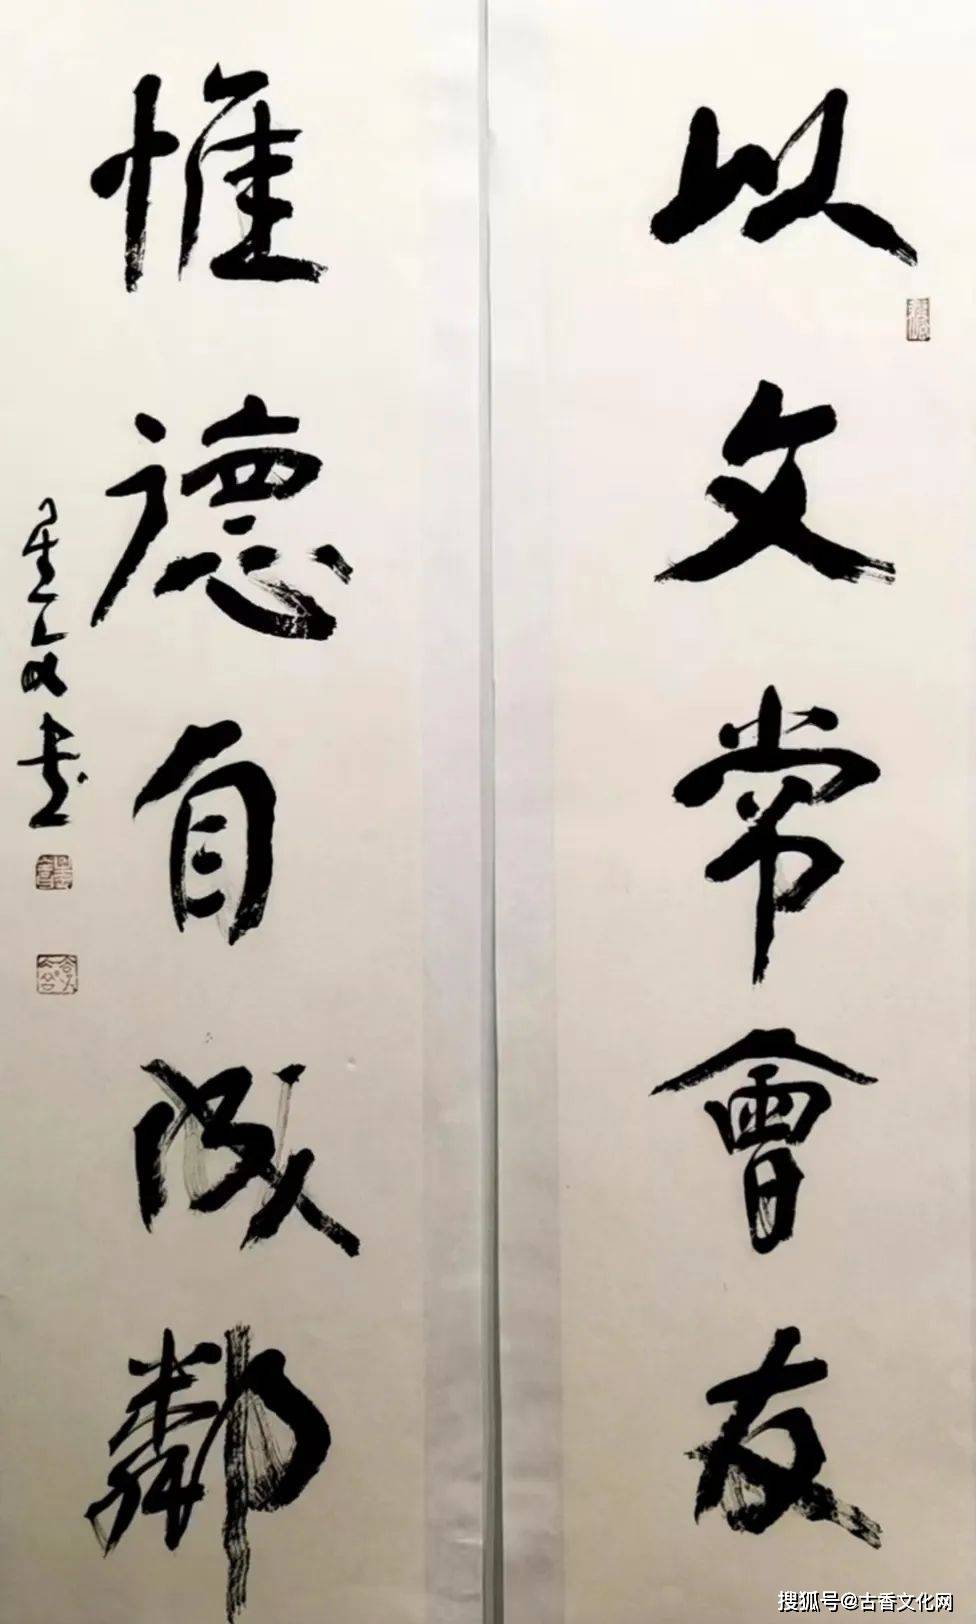 以文常會友
惟德自成鄰
搜狐号@古香文化网